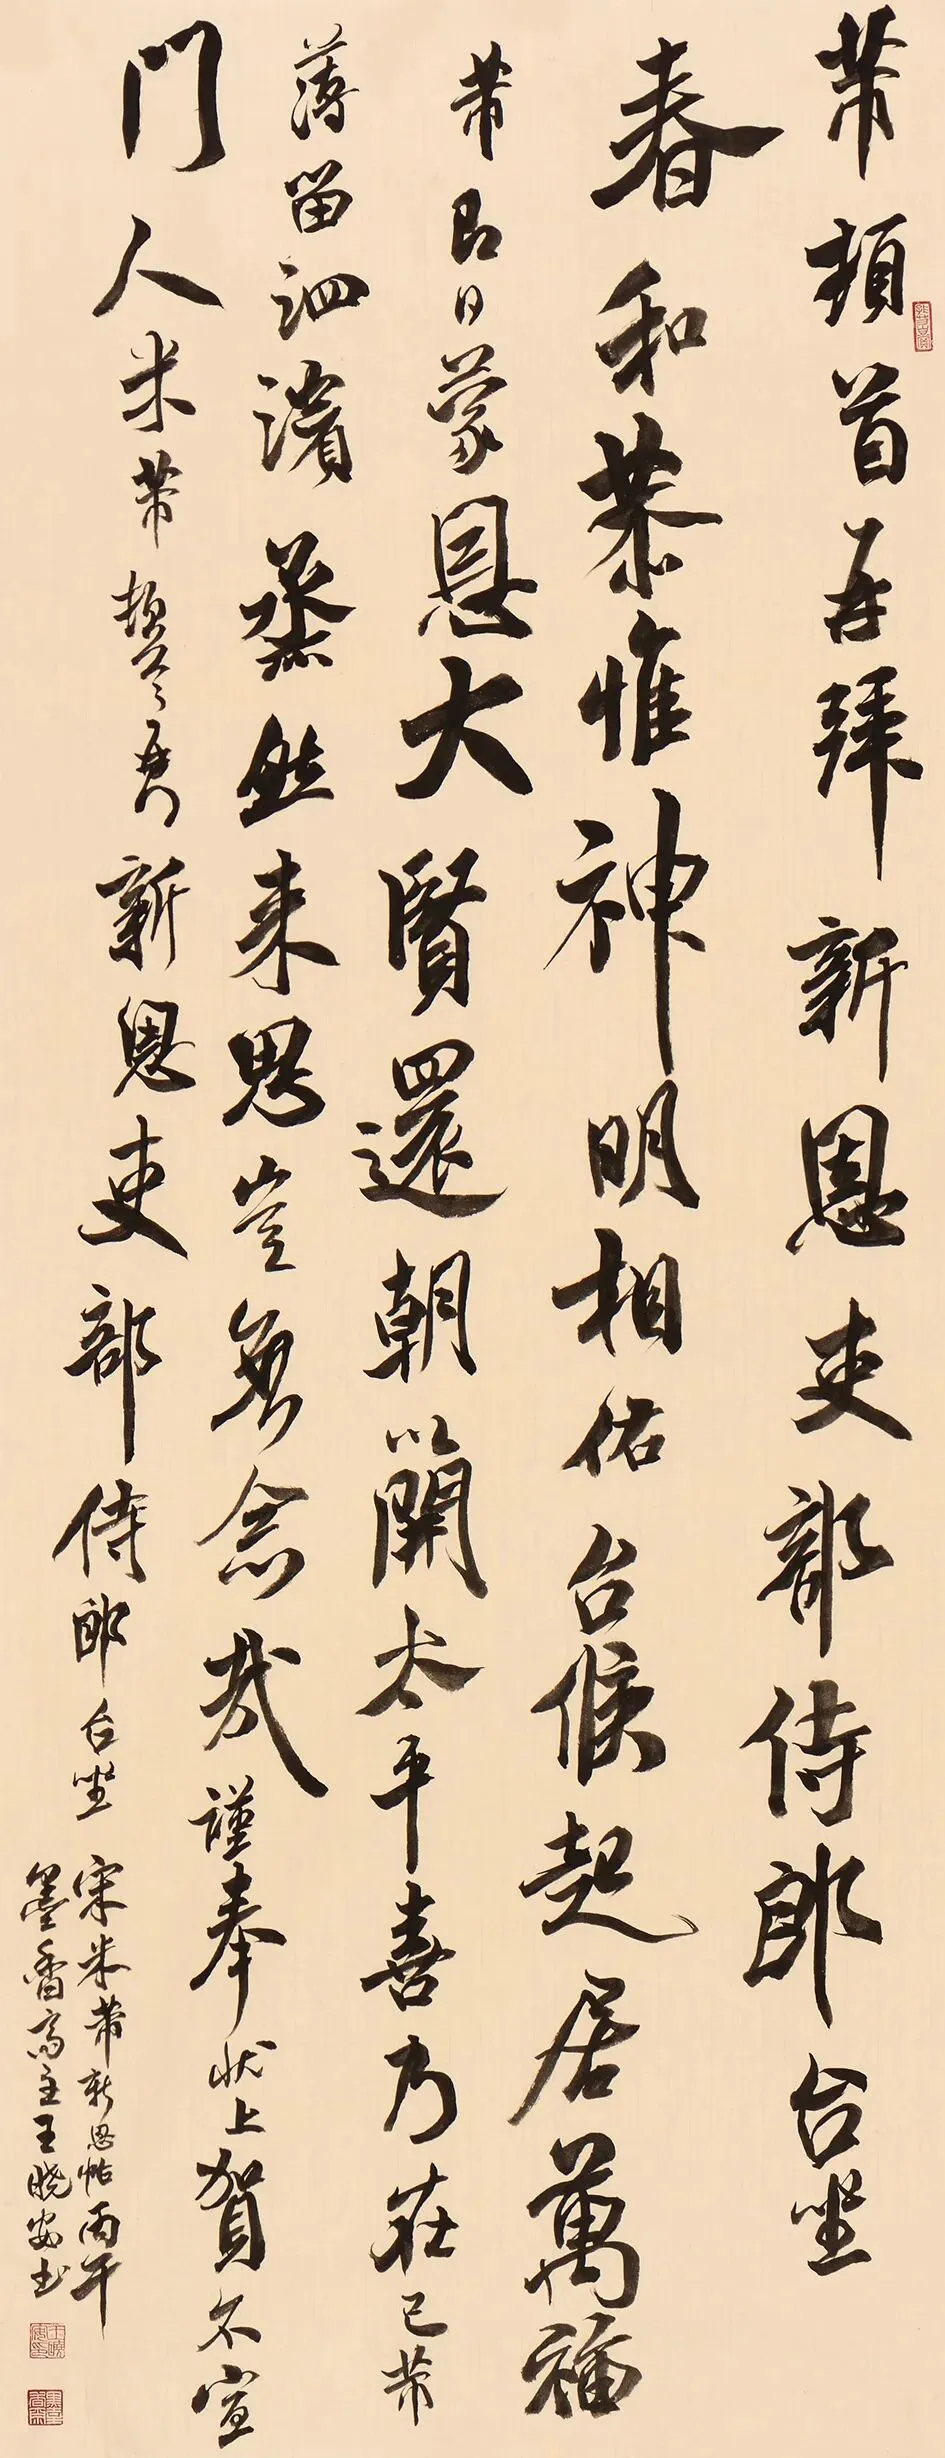 芾頓首再拜新恩吏部侍郎台坐
春和恭惟神明相佑台候起居萬福
芾即日蒙恩大賢還朝以開太平喜乃在己芾
薄留泗濱蒸然来思豈無念哉謹奉狀上賀不宣
門人米芾頓首再拜新恩吏部侍郎台坐
宋米芾新恩帖丙午
墨香齋主王曉安書